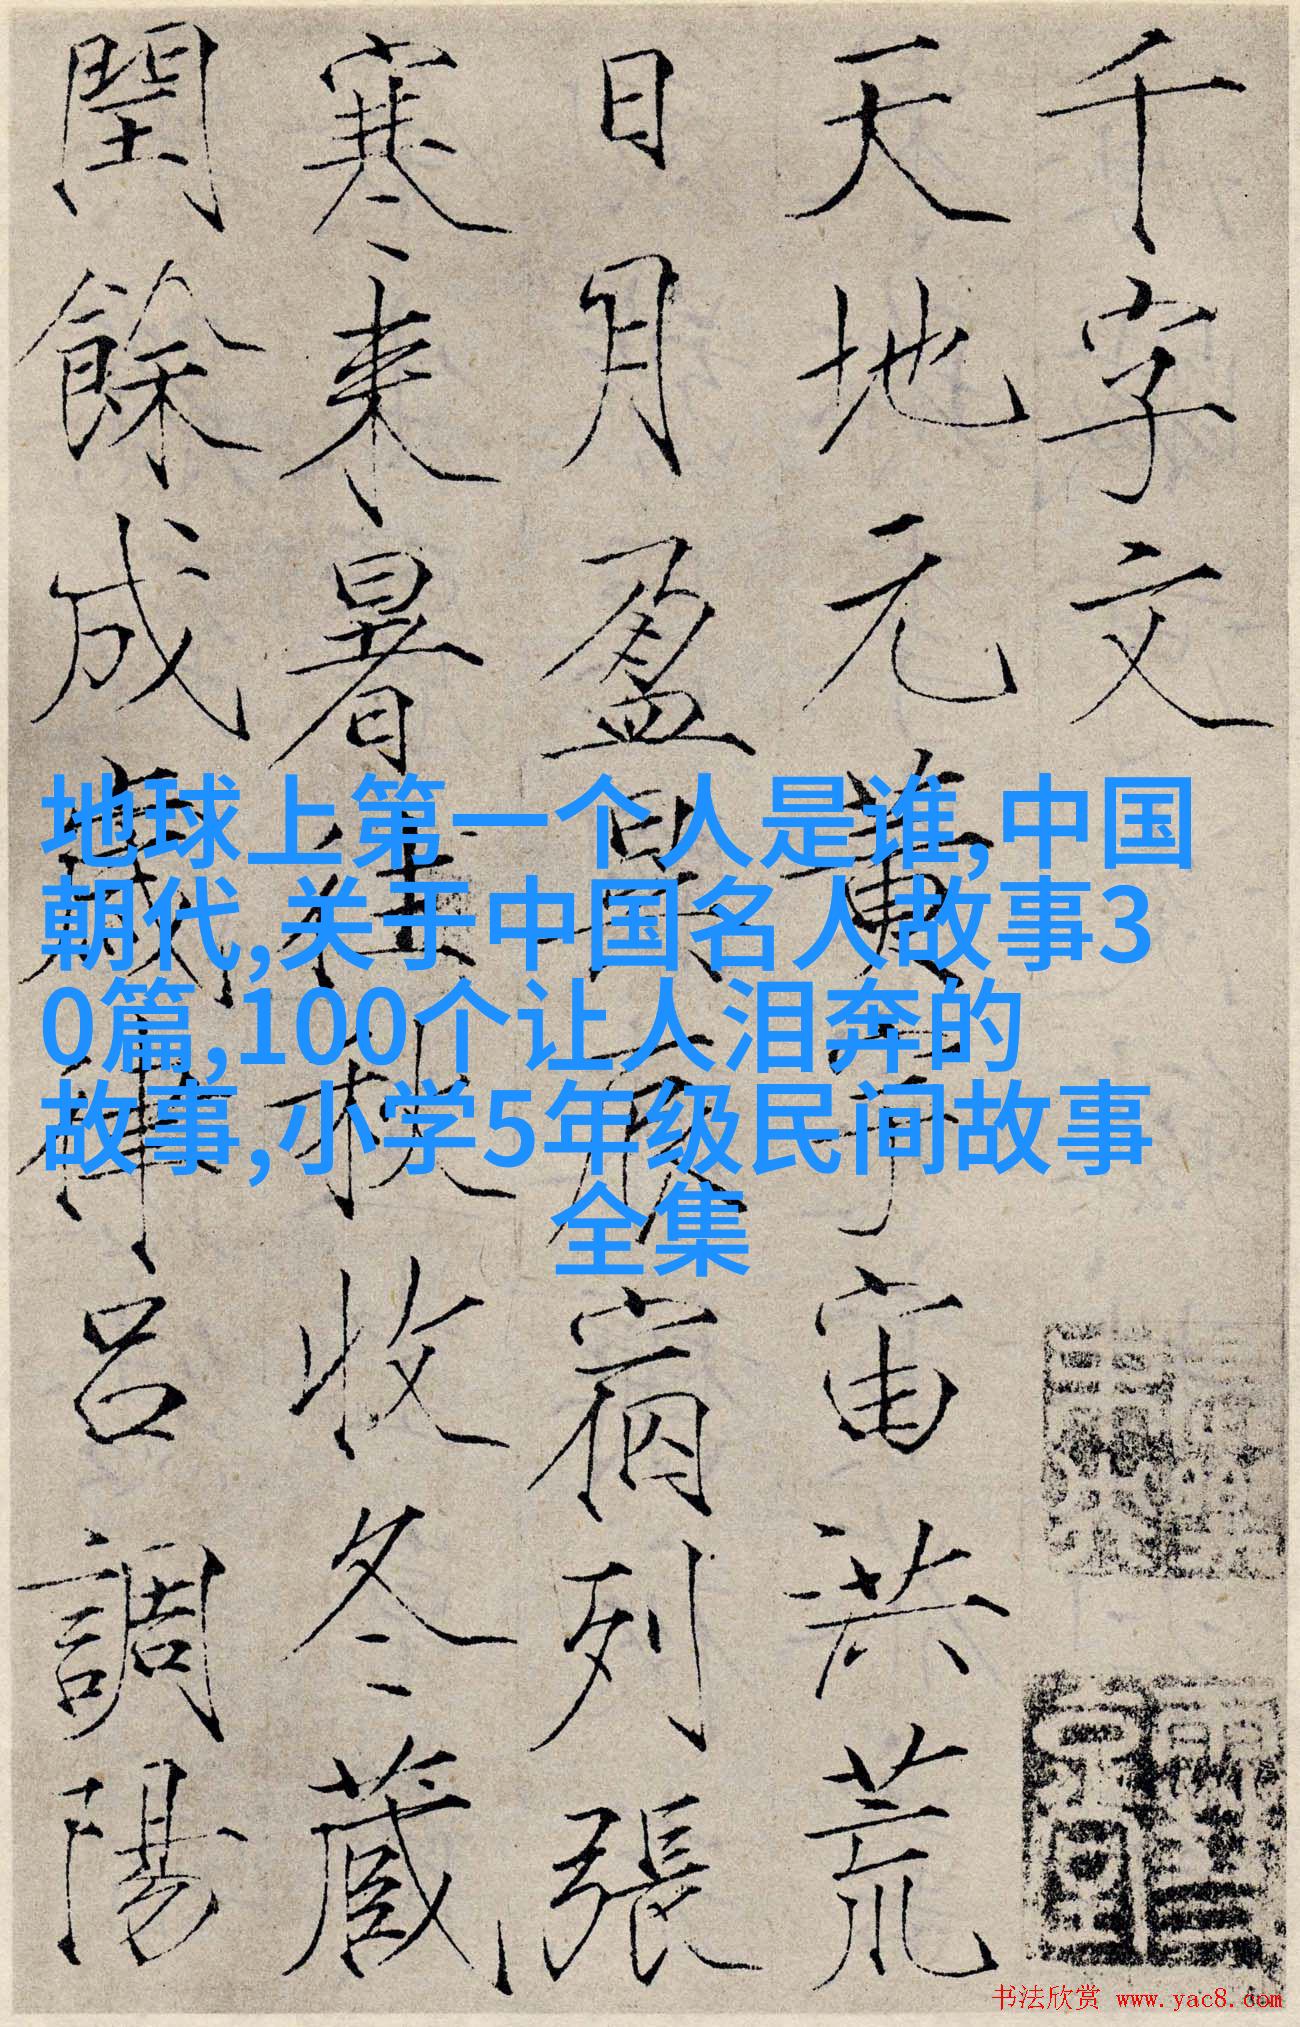 千字文
天地元黃宇宙洪荒
日月盈昃辰宿列張
寒来暑往秋收冬藏
閏餘成歲律呂調陽
地球上第一个人是谁,中国
朝代,关于中国名人故事3
0篇,100个让人泪奔的
故事,小学5年级民间故事
全集
书法欣赏 www.yac8.com